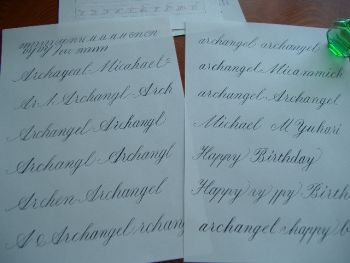 Archageal Micahael
Ar A Archangl Arch
Archangel Arckangl
Archangl Archangl
Archen Archangel
A c Archangel rchang
archangel archangel
archangel Micammick
archangel Archangel
Michael M Yukari
Happy Birthday
Happy ry ppy Birth
archangel happy b